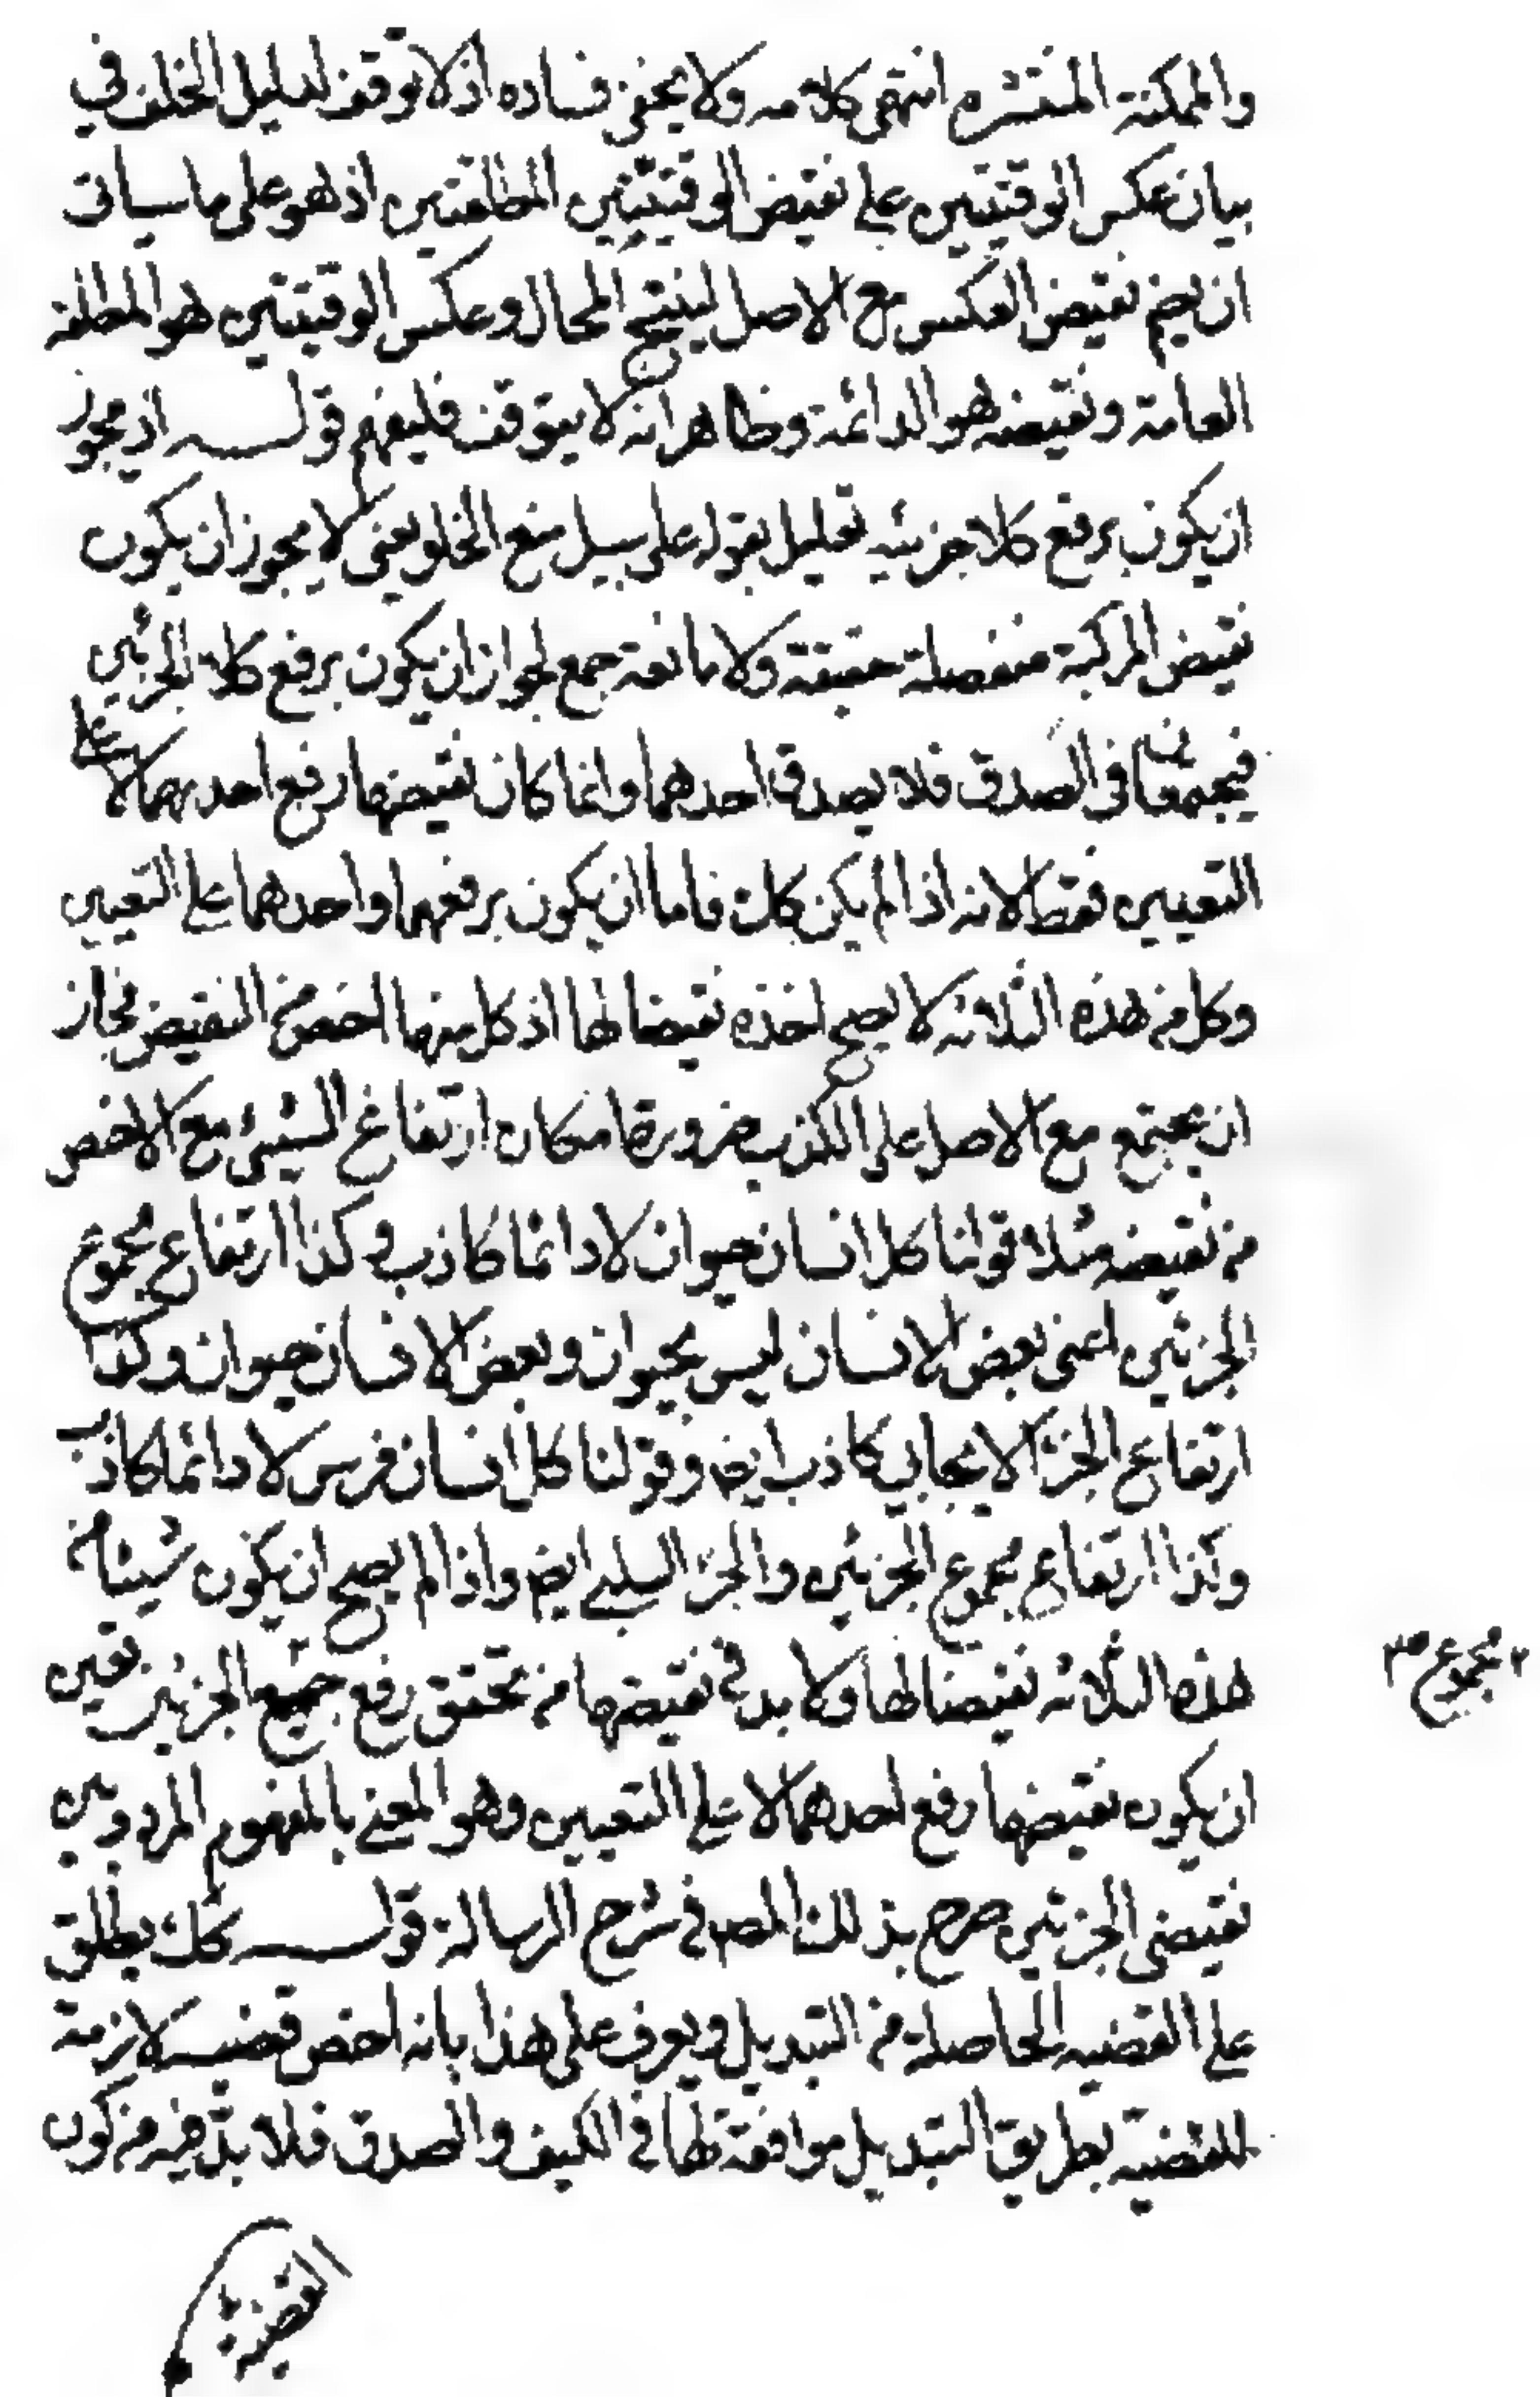 والممكنة المنتشره انتهى كلامه ولا يخفى فساده اذ لا توقف لدليل الخلف في
بيان عكس الوقتيتين على نقيض الوقتيتين المطلقتين اذ هو على ما سياتى
ان يضم نقيض العكس مع الاصل لينتج المحال وعكس الوقتيتين هو المطلقة
العامة ونقيضه هو الدائمة وظاهر انه لا يتوقف فليفهم قوله اذ يجوز
ان يكون برفع كلا جزئيه تعليل بقوله على سبيل منع الخلو يعنى لا يجوز ان يكون
نقيض المركبة منفصلة حقيقة ولا مانعة جمع لجواز ان يكون برفع كلا الجزئين
فيجتمعا في الصدق فلا يصدق احدهما وانما كان نقيضها رفع احدهما لا على
التعيين فقط لانه اذا لم يكن كك فاما ان يكون برفعهما واحدهما على التعيين
وكل من هذه الثلاثه لا يصح اخذه نقيضا لها اذ كل منها اخص من النقيض فجاز
ان يجتمع مع الاصل على الكذب ضرورة امكان ارتفاع الشيئ مع الاخص
من نقيضه مثلا قولنا كل انسان حيوان لا دائما كاذب وكذا ارتفاع مجموع
الجزئين اعنى بعض الانسان ليس بحيوان وبعض الانسان حيوان وكذا
ارتفاع الجزء الايجابي كاذب ايض وقولنا كل انسان فرس لا دائما كاذب
وكذا ارتفاع مجموع الجزئين والجزء السلبي ايض واذا لم يصح ان يكون شيئا من
هذه الثلاثه نقيضا لها ولا بد في نقيضها من تحقق رفع جميع الجزئين تعين
٢ مجموع ص
ان يكون نقيضها رفع احدهما لا على التعيين وهو المعنى بالمفهوم المردد بين
نقيضى الجزئين صرح بذلك المص في شرح الرسالة قوله كك يطلق
على القضيه الحاصلة من التبديل ويعرف على هذا بانه اخص قضيه لازمة
للقضية بطريق التبديل موافقة لها في الكيف والصدق فلا بد فيه من كون
القضية